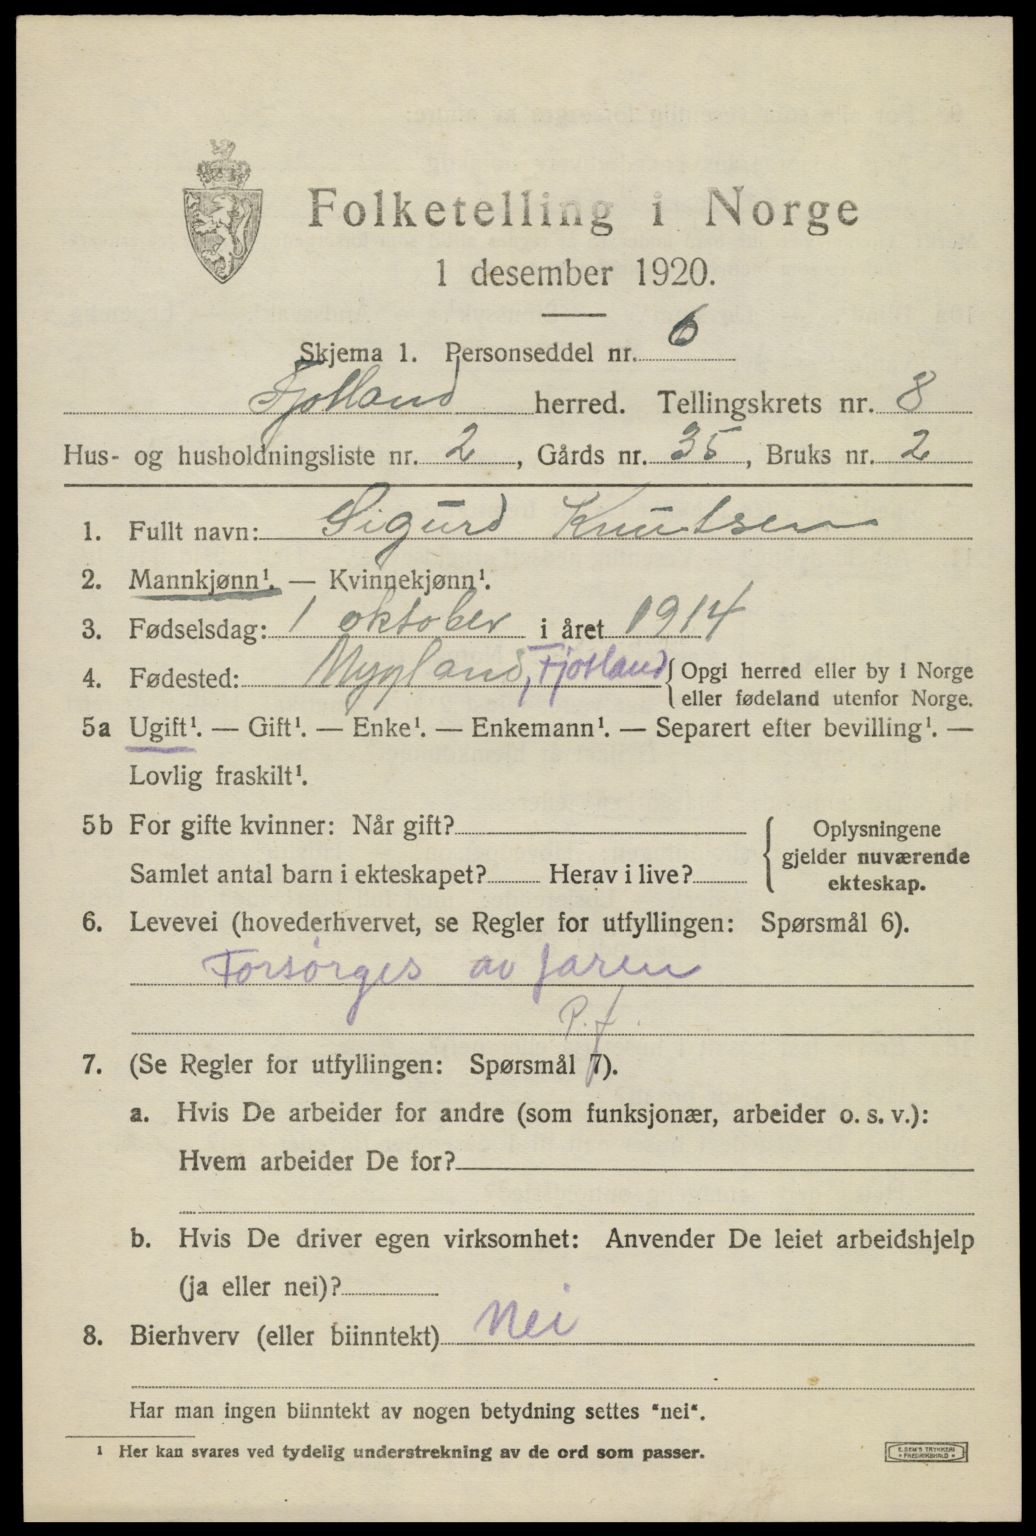 Folketelling i Norge
1 desember 1920.
Skjema 1. Personseddel nr. 6
Fjotland herred. Tellingskrets nr. 8
Hus- og husholdningsliste nr. 2, Gårds nr. 35, Bruks nr. 2
1. Fullt navn: Sigurd Knutsen
2. Mannkjønn¹. — Kvinnekjønn¹.
3. Fødselsdag: 1 oktober i året 1914
4. Fødested: Mygland, Fjotland { Opgi herred eller by i Norge
eller fødeland utenfor Norge.
5a Ugift¹. — Gift¹. — Enke¹. — Enkemann¹. — Separert efter bevilling¹. —
Lovlig fraskilt¹.
5b For gifte kvinner: Når gift?
Samlet antal barn i ekteskapet? Herav i live?
Oplysningene
gjelder nuværende
ekteskap.
6. Levevei (hovederhvervet, se Regler for utfyllingen: Spørsmål 6).
Forsørges av faren
P.f.
7. (Se Regler for utfyllingen: Spørsmål 7).
a. Hvis De arbeider for andre (som funksjonær, arbeider o. s. v.):
Hvem arbeider De for?
b. Hvis De driver egen virksomhet: Anvender De leiet arbeidshjelp
(ja eller nei)?
8. Bierhverv (eller biinntekt) Nei
Har man ingen biinntekt av nogen betydning settes "nei".
¹ Her kan svares ved tydelig understrekning av de ord som passer.
E. SEM'S TRYKKERI
FREDRIKSHALD